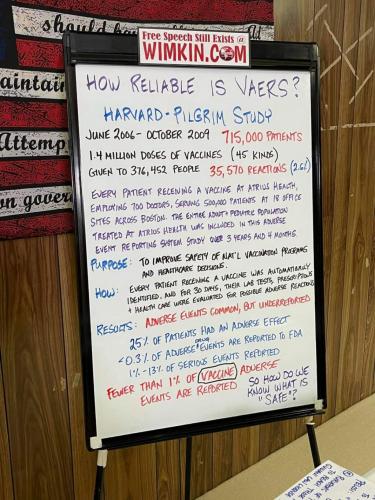 should
maintain
Attemp
on gover
Free Speech Still Exists @
WIMKIN.COM
HOW RELIABLE IS VAERS?
HARVARD-PILGRIM STUDY
JUNE 2006 - OCTOBER 2009 715,000 PATIENTS
1.4 MILLION DOSES OF VACCINES (45 KINDS)
GIVEN TO 376,452 PEOPLE 35,570 REACTIONS (2.6%)
EVERY PATIENT RECEIVING A VACCINE AT ATRIUS HEALTH,
EMPLOYING 700 DOCTORS, SERVING 500,000 PATIENTS AT 18 OFFICE
SITES ACROSS BOSTON. THE ENTIRE ADULT + PEDIATRIC POPULATION
TREATED AT ATRIUS HEALTH WAS INCLUDED IN THIS ADVERSE
EVENT REPORTING SYSTEM STUDY OVER 3 YEARS AND 4 MONTHS.
PURPOSE: TO IMPROVE SAFETY OF NAT'L VACCINATION PROGRAMS
AND HEALTHCARE DECISIONS.
HOW: EVERY PATIENT RECEIVING A VACCINE WAS AUTOMATICALLY
IDENTIFIED, AND FOR 30 DAYS, THEIR LAB TESTS, PRESCRIPTIONS
+ HEALTH CARE WERE EVALUATED FOR POSSIBLE ADVERSE REACTIONS
RESULTS: ADVERSE EVENTS COMMON, BUT UNDERREPORTED
25% OF PATIENTS HAD AN ADVERSE EFFECT
<0.3% OF ADVERSE DRUG EVENTS ARE REPORTED TO FDA
1%-13% OF SERIOUS EVENTS REPORTED
FEWER THAN 1% OF VACCINE ADVERSE
EVENTS ARE REPORTED
SO HOW DO WE
KNOW WHAT IS
"SAFE"?